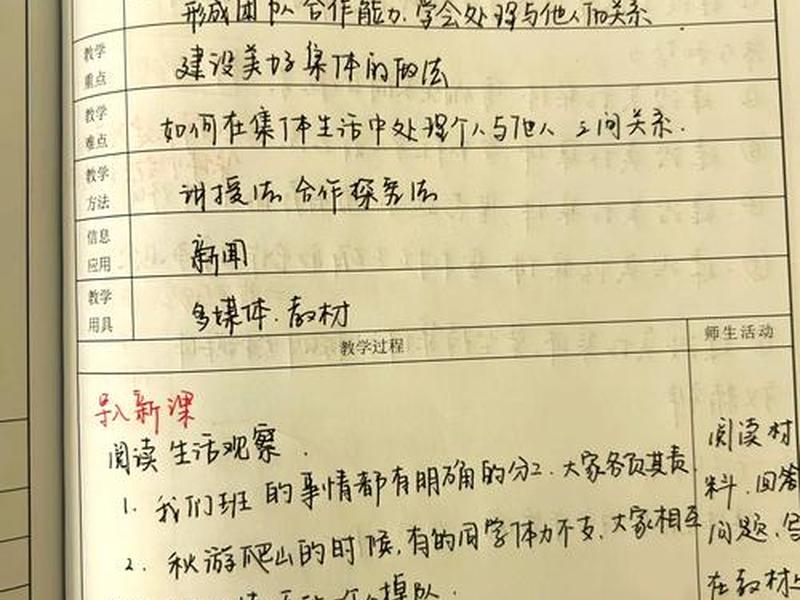 形成团队合作能力.学会处理与他人的关系
教学重点
建设美好集体的做法
教学难点
如何在集体生活中处理个人与他人之间关系.
教学方法
讲授法 合作探究法
信息应用
新闻
教学用具
多媒体.教材
教学过程
师生活动
导入新课
阅读 生活观察.
1. 我们班 的事情都有明确的分工.大家各负其责.
2. 秋游爬山的时候,有的同学体力不支.大家相互
个掉队.
阅读材
料.回答
问题,写
在教材上